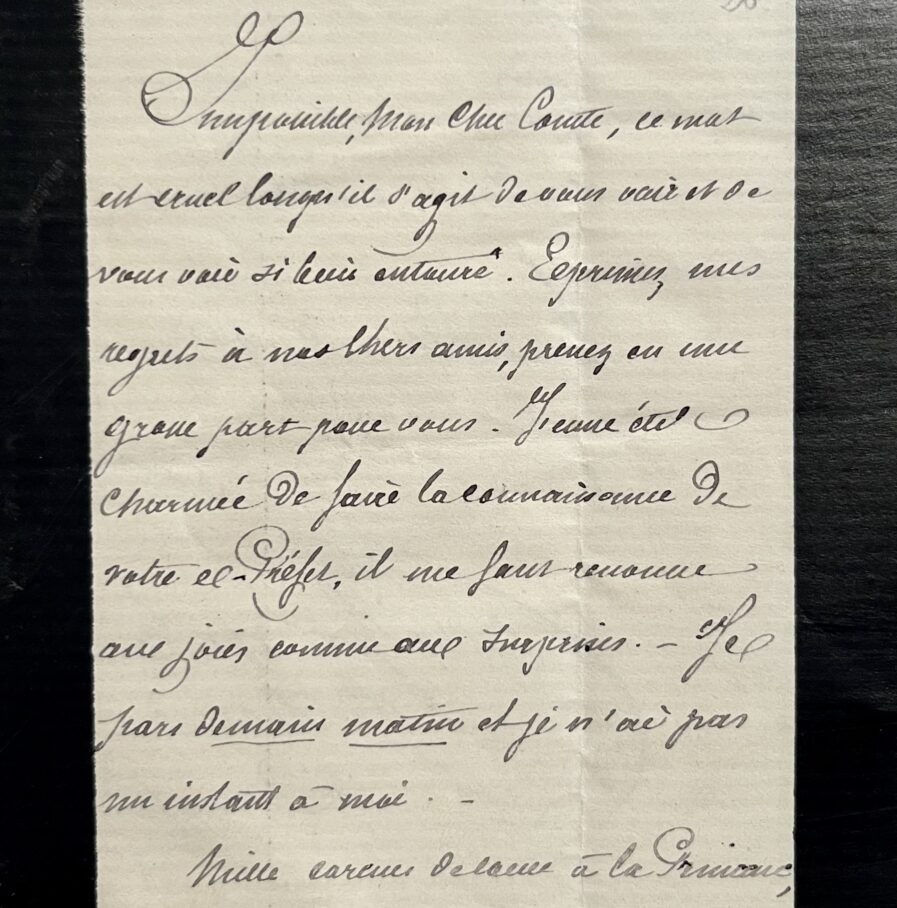 Impossible, Mon Cher Comte, ce mot
est cruel lorsqu'il s'agit de vous voir et de
vous voir si bien entouré. Exprimez mes
regrets à nos chers amis, prenez en une
grosse part pour vous. - J'eusse été
charmée de faire la connaissance de
votre ex-Préfet, il me faut renoncer
aux joies comme aux surprises. - Je
pars demain matin et je n'ai pas
un instant à moi. -
Mille caresses de coeur à la Princesse,